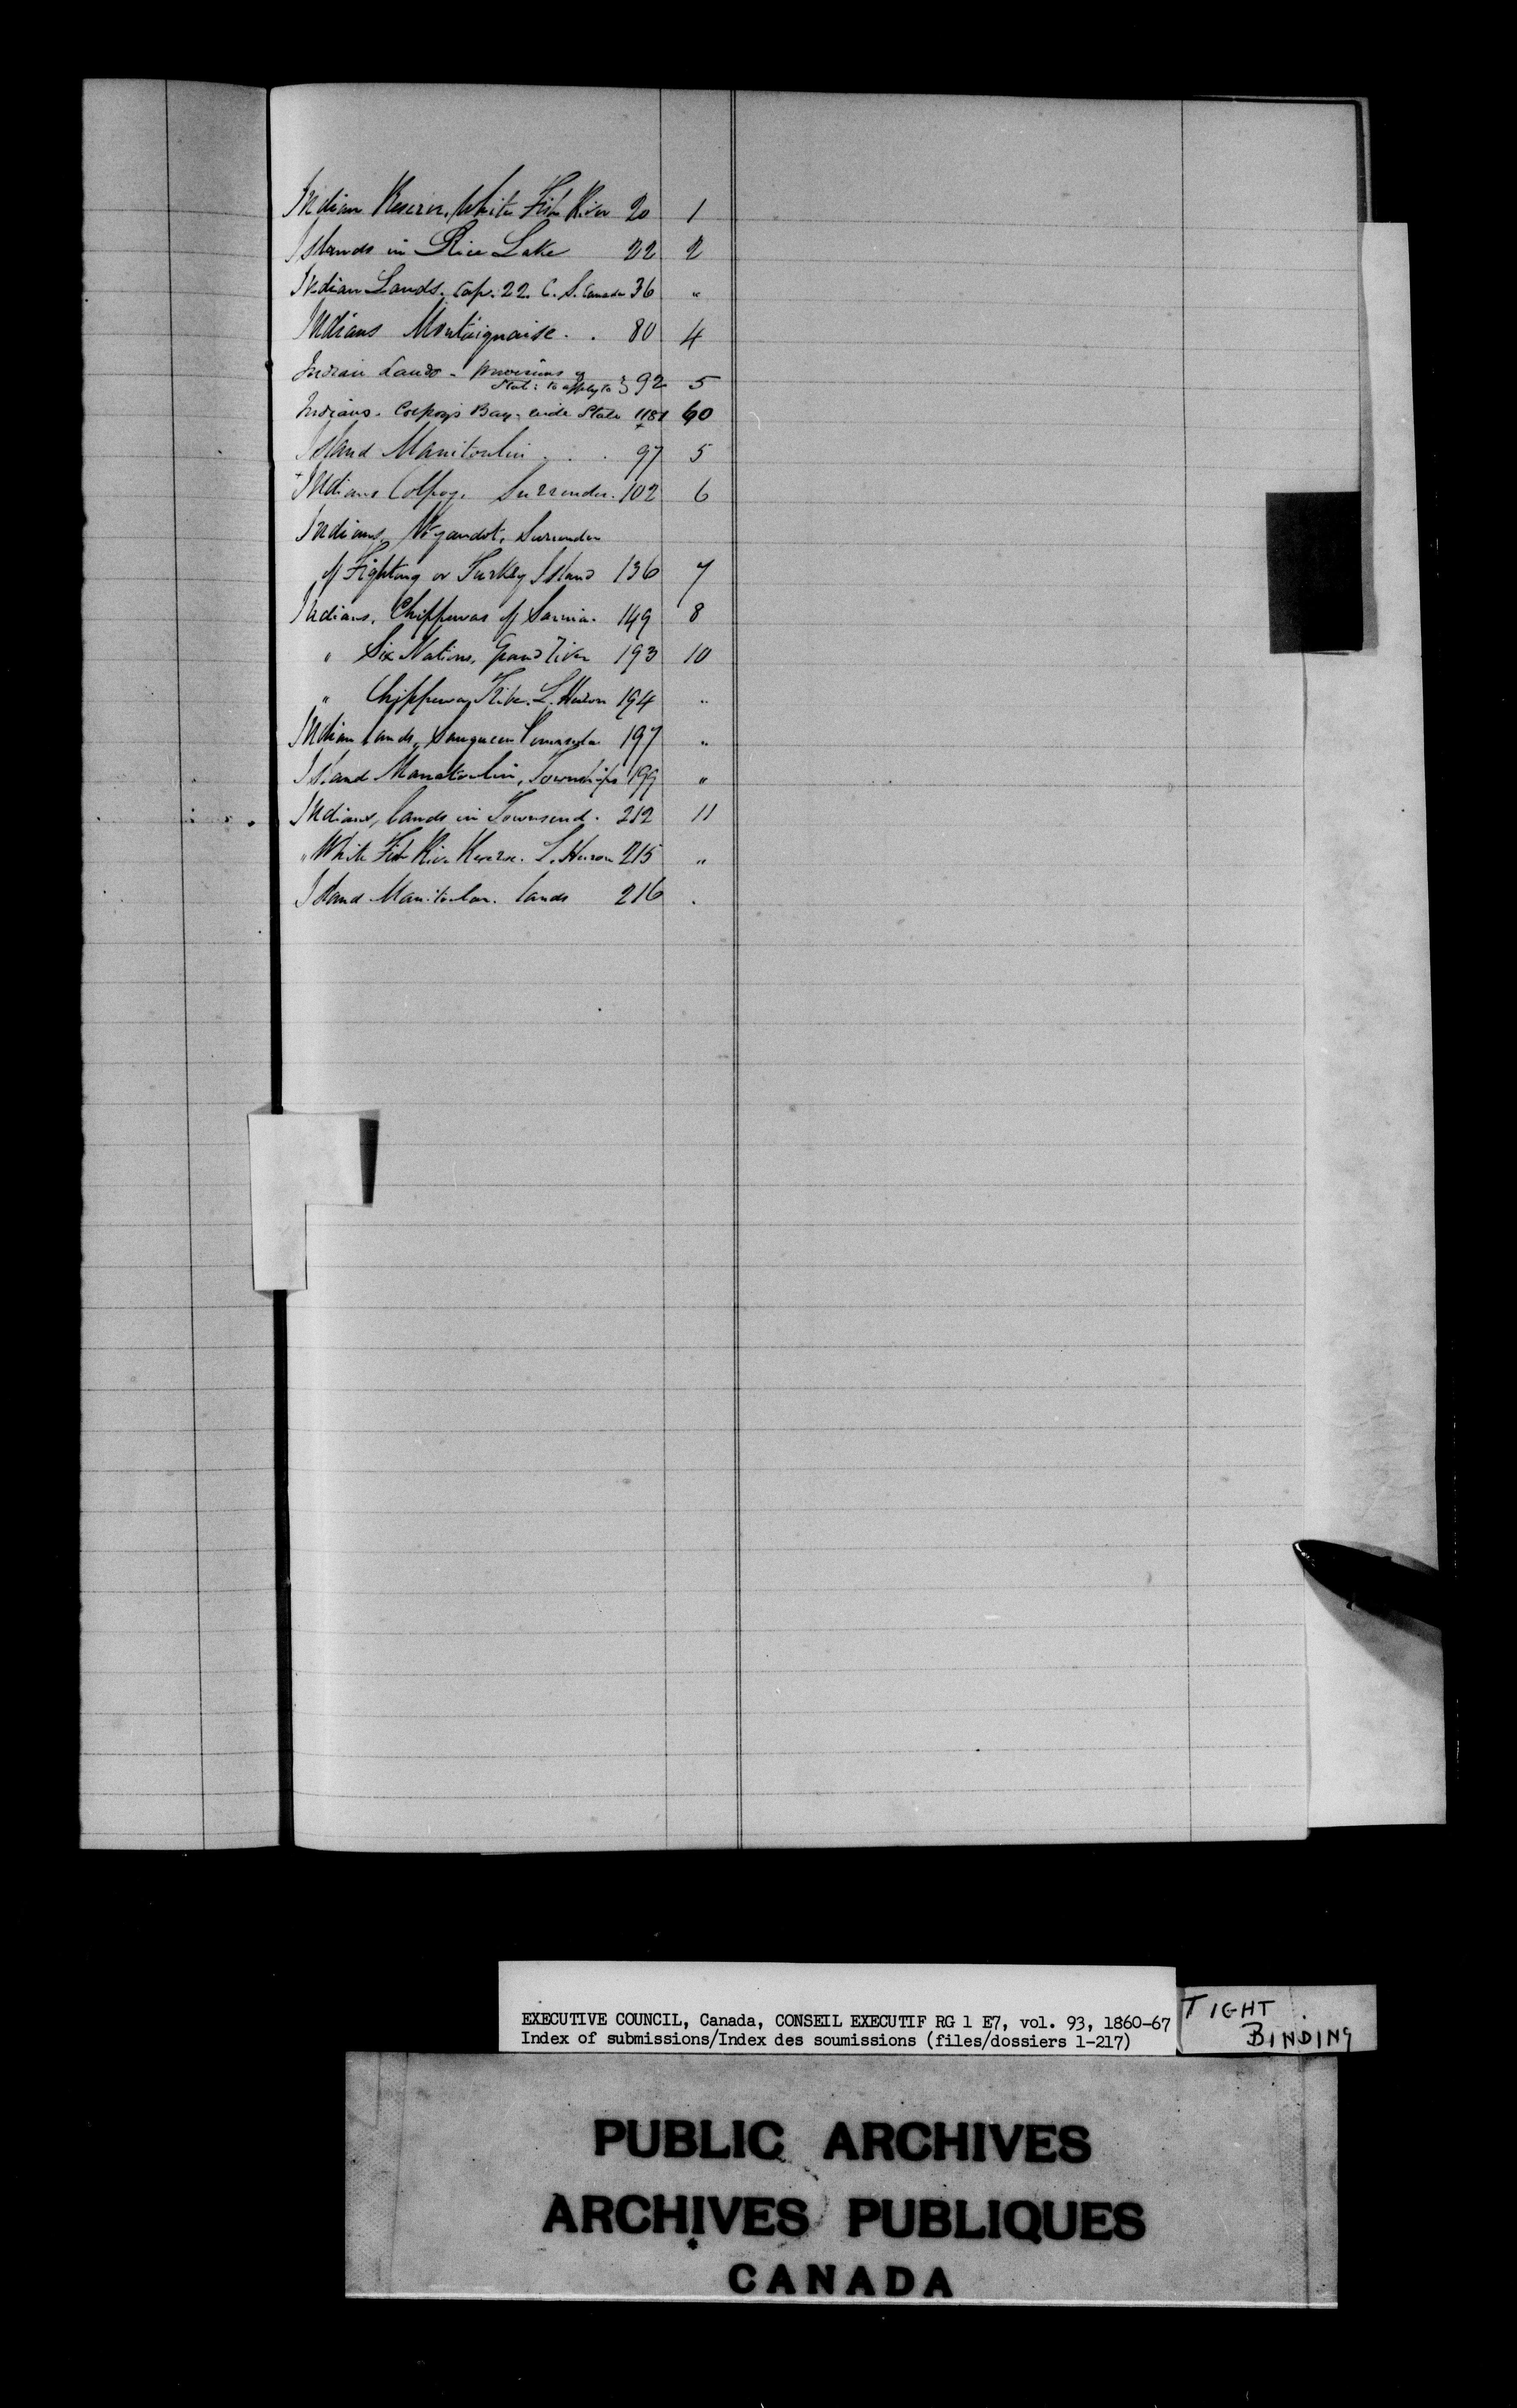 Indian Reserve, White Fish River 20 1
Islands in Rice Lake 22 2
Indian Lands. Cap. 22. C. S. Canada 36 "
Indians Montaignaise . . 80 4
Indian Lands - provisions of
Stat: to apply to } 92 5
Indians. Colpoy's Bay - vide State 1181 60
Island Manitoulin . . . 97 5
+ Indians Colpoys Surrender. 102 6
Indians, Wyandot, Surrender
of Fighting or Turkey Island 136 7
Indians, Chippewas of Sarnia. 149 8
" Six Nations, Grand River 193 10
" Chippeway Tribe. L. Huron 194 "
Indian lands, Saugueen Peninsula 197 "
Island Manatoulin, Townships 199 "
Indians, lands in Townsend. 212 11
" White Fish River Reserve. L. Huron 215 "
Island Manitoulin. lands 216 .
EXECUTIVE COUNCIL, Canada, CONSEIL EXECUTIF RG 1 E7, vol. 93, 1860-67
Index of submissions/Index des soumissions (files/dossiers 1-217)
TIGHT
BINDING
PUBLIC ARCHIVES
ARCHIVES PUBLIQUES
CANADA